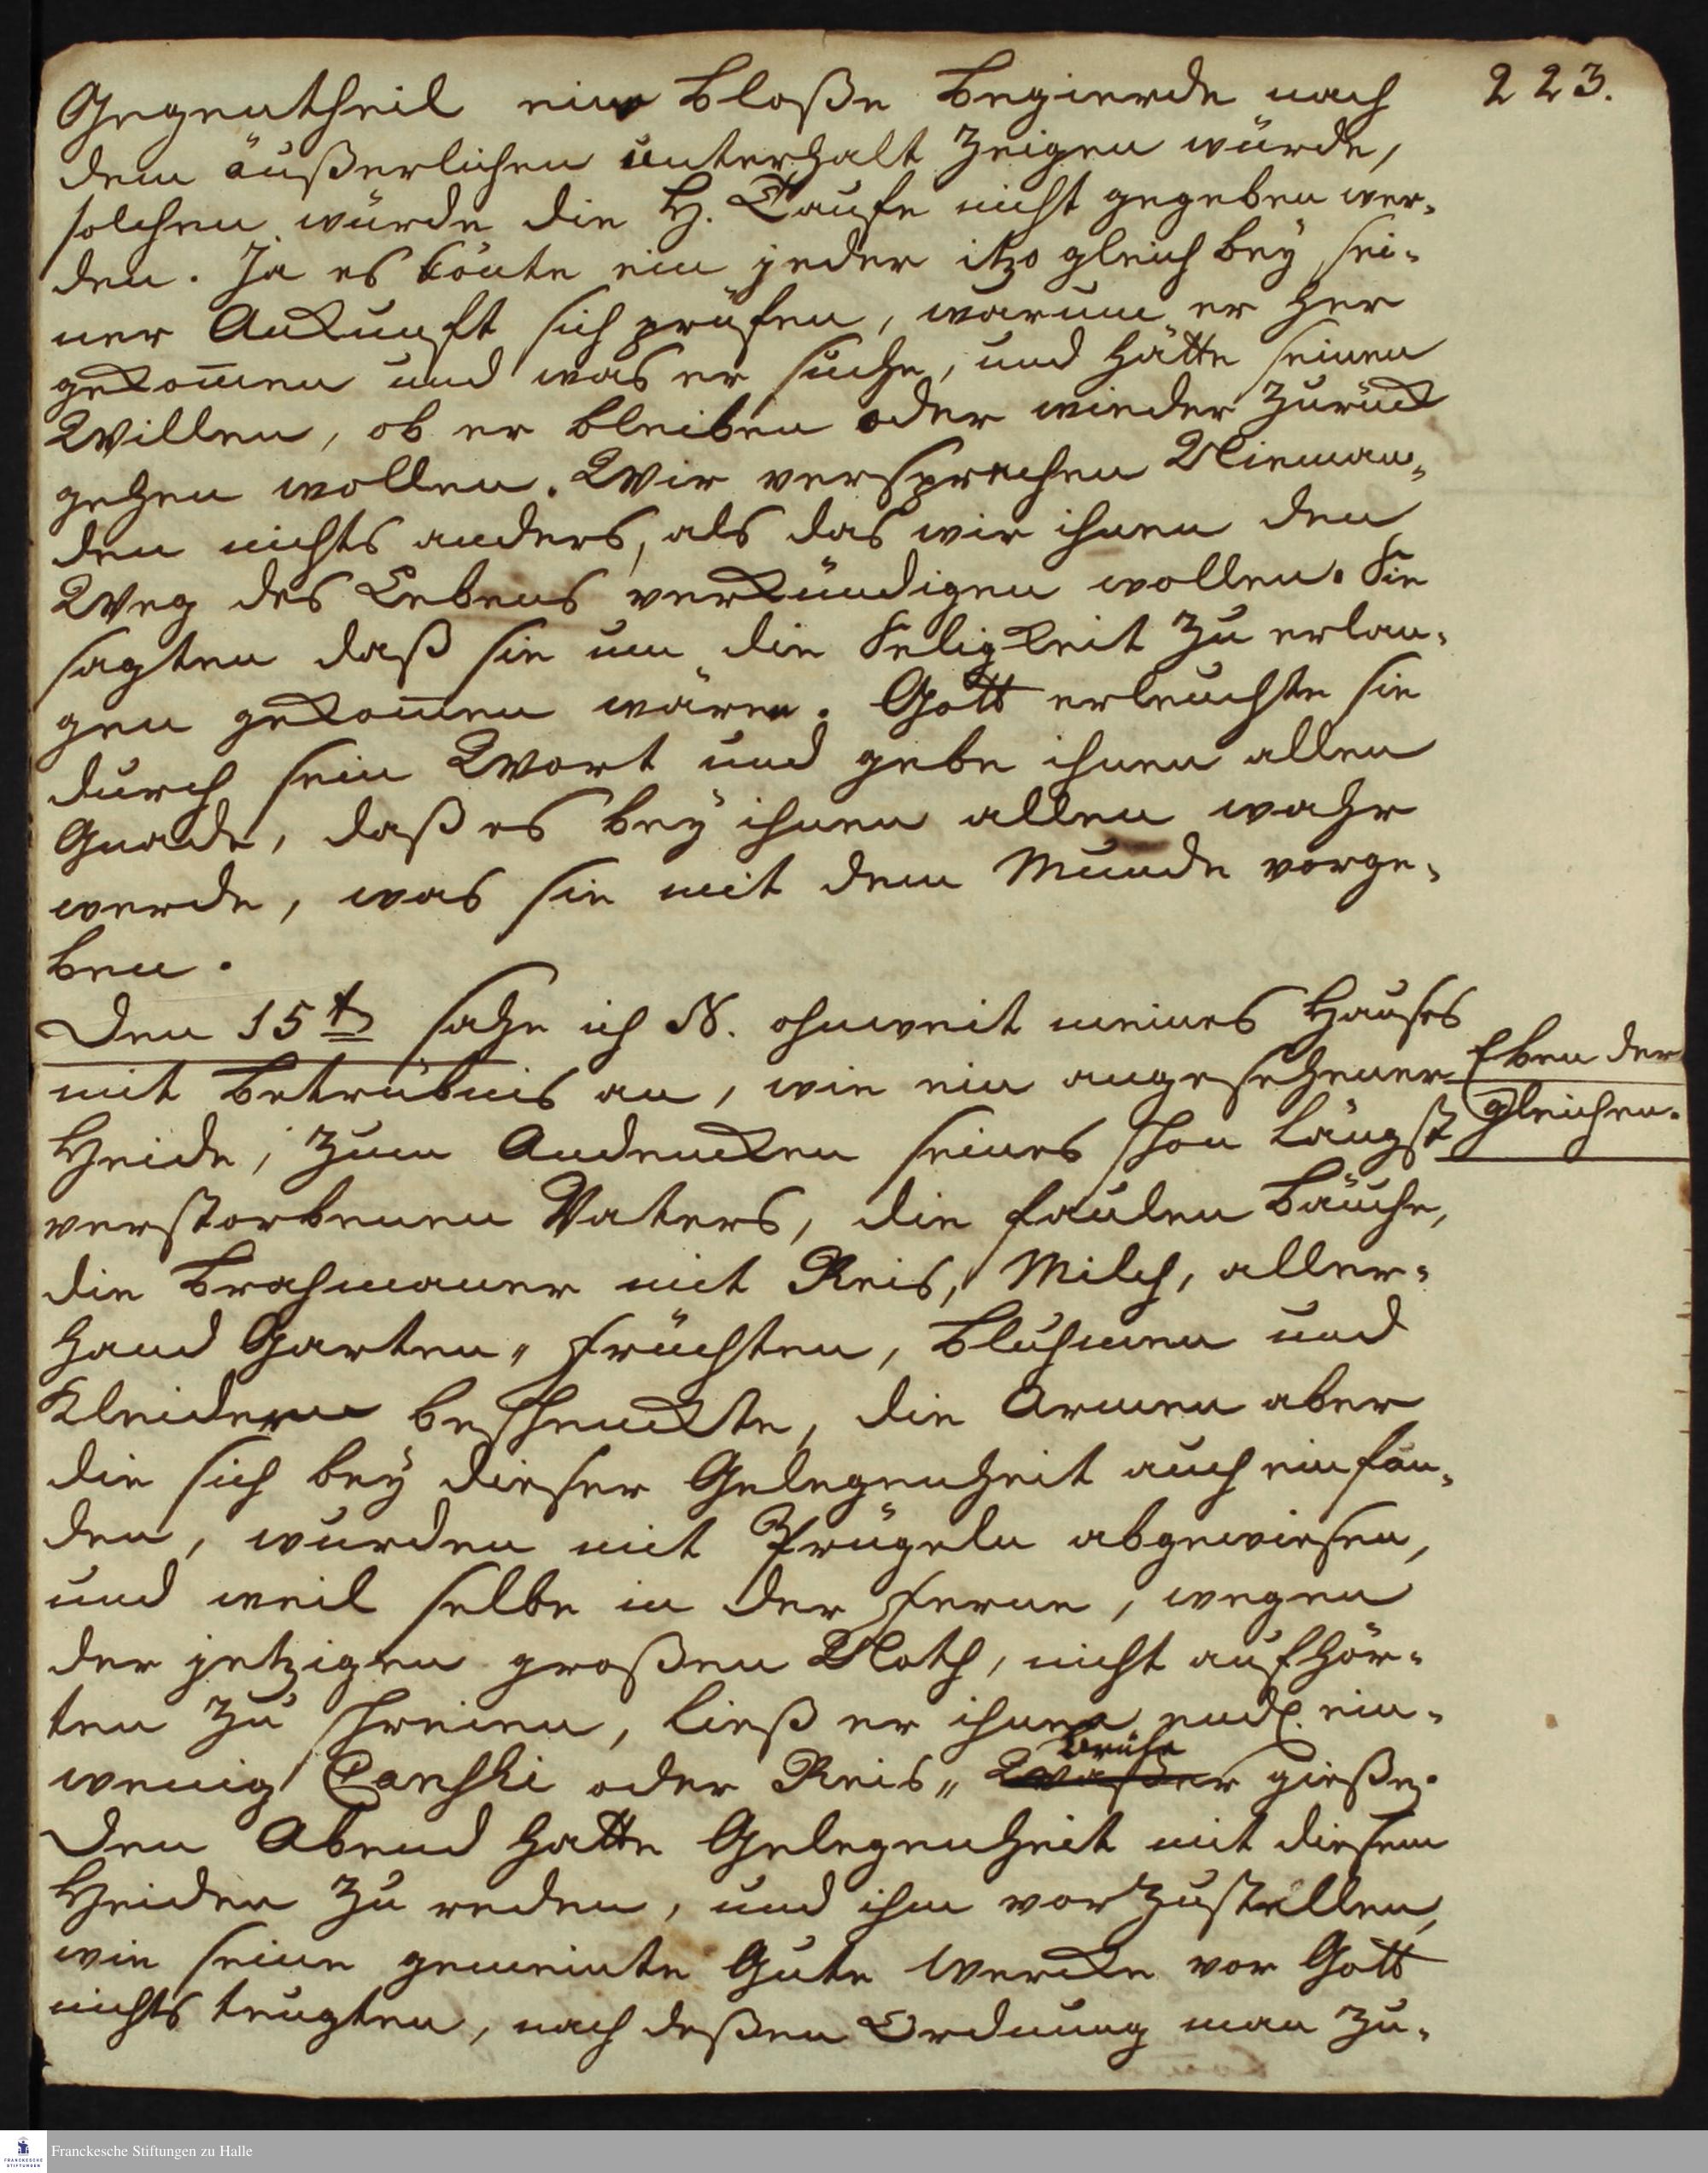 223.
Gegentheil eine bloße Begierde nach
dem äußerlichen unterhalt zeigen würde,
solchen würde die H. Taufe nicht gegeben wer-
den. Ja es könte ein jeder itzo gleich bey sei-
ner Ankunft sich prüfen, warum er her
gekom̄en und was er suche, und hätte seinen
Willen, ob er bleiben oder wieder zurück
gehen wollen. Wir versprechen Nieman-
den nichts anders, als das wir ihnen den
Weg des Lebens verkündigen wollen. Sie
sagten daß sie um die Seligkeit zu erlan-
gen gekom̄en wären. Gott erleuchte sie
durch sein Wort und gebe ihnen allen
Gnade, daß es bey ihnen allen wahr
werde, was sie mit dem Munde vorge-
ben.
Den 15t. sahe ich N. ohnweit meines Hauses
mit Betrübnis an, wie ein angesehener
Eben der
gleichen.
Heide, zum Andencken seines schon längst
verstorbenen Vaters, die faulen Bäuche,
die Brahmaner mit Reis, Milch, aller-
hand Garten-Früchten, Bluhmen und
Kleidern beschenckte, die Armen aber
die sich bey dieser Gelegenheit auch einfan-
den, wurden mit Prügeln abgewiesen,
und weil selbe in der Ferne, wegen
der jetzigen großen Noth, nicht aufhör-
ten zu schreien, ließ er ihnen endl. ein-
Brühe
wenig Canschi oder Reis-Waßer gießen.
Den Abend hatte Gelegenheit mit diesem
Heiden zu reden, und ihm vorzustellen,
wie seine gemeinte Gute Wercke vor Gott
nichts teugten, nach deßen Ordnung man zu-
Franckesche Stiftungen zu Halle
FRANCKESCHE
STIFTUNGEN